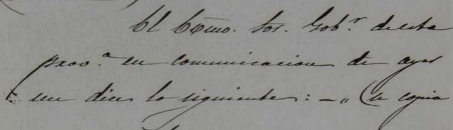 El Excmo. Sor. Gobr. de esta
prov.a en comunicacion de ayer
me dice lo siguiente: = "En copia